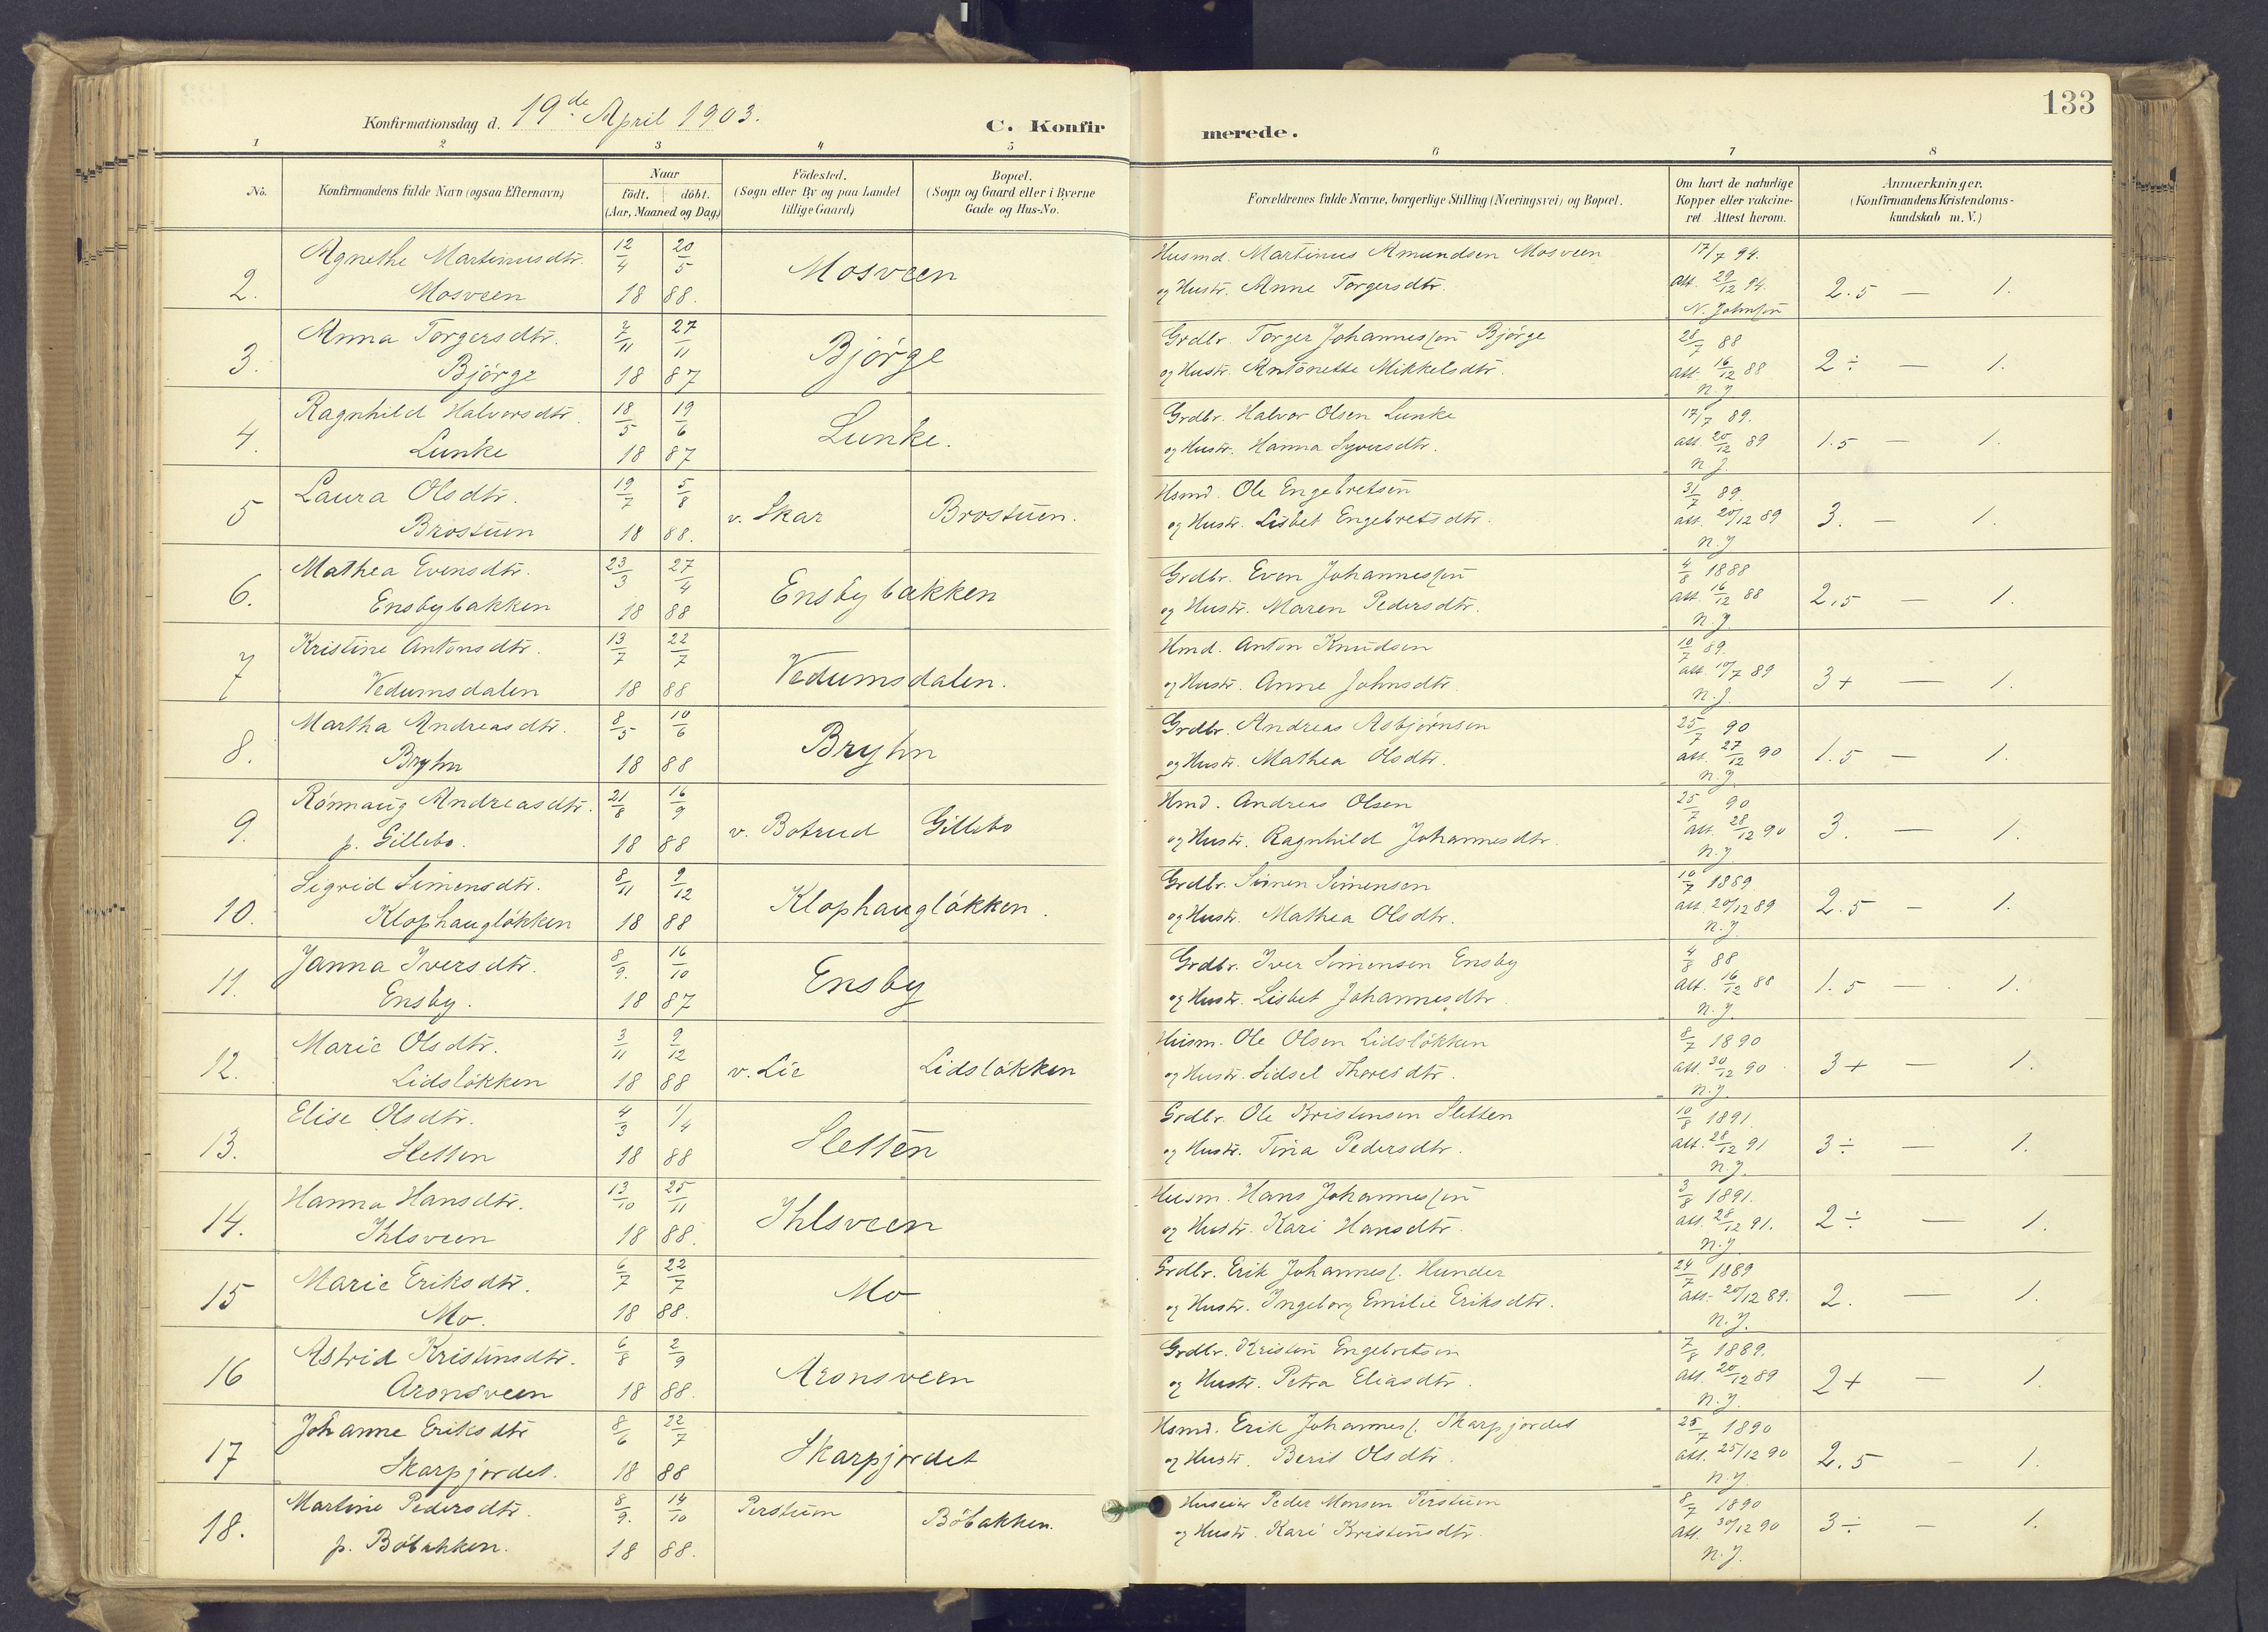 133
Konfirmationsdag d. 19de April 1903.
C. Konfirmerede.
1 2 3 4 5 6 7 8
No.
Konfirmandens fulde Navn (ogsaa Efternavn)
Naar
födt. döbt.
(Aar, Maaned og Dag)
Födested.
(Sogn eller By og paa Landet
tillige Gaard)
Bopæl.
(Sogn og Gaard eller i Byerne
Gade og Hus-No.
Forældrenes fulde Navne, borgerlige Stilling (Næringsvei) og Bopæl.
Om havt de naturlige
Kopper eller vakcine-
ret. Attest herom.
Anmærkninger.
(Konfirmandens Kristendoms-
kundskab m. V.)
Agnethe Martinusdtr. 12/4 20/5 Husmd. Martinus Amundsen Mosveen 17/7 94.
2. Mosveen 18 88. Mosveen og Hustr. Anne Torgersdtr. att. 29/12 94. 2.5 — 1.
N. Johnsen
Anna Torgersdtr. 2/11 27/11 Grdbr. Torger Johannessen Bjørge 28/7 88
3. Bjørge 18 87 Bjørge og Hustr. Antonette Mikkelsdtr. att. 16/12 88 2÷ — 1.
N. J
Ragnhild Halvorsdtr. 18/5 19/6 Grdbr. Halvor Olsen Lunke 17/7 89.
4. Lunke 18 87 Lunke. og Hustr. Hanna Syversdtr. att. 20/12 89 1.5 — 1.
N J.
Laura Olsdtr. 19/7 5/8 Hsmd. Ole Engebretsen 31/7 89.
5 Brostuen 18 88. v. Skar Brostuen. og Hustr. Lisbet Engebretsdtr. att. 20/12 89 3. — 1.
N. J
Mathea Evensdtr. 23/3 27/4 Grdbr. Even Johannessen 4/8 1888
6. Ensbybakken 18 88 Ensbybakken og Hustr. Maren Pedersdtr. att. 16/12 88 2,5 — 1.
N. J.
Kristine Antonsdtr. 13/7 22/7 Hmd. Anton Knudsen 10/7 89.
7 Vedumsdalen 18 88 Vedumsdalen. og Hustr. Anne Johnsdtr. att 10/7 89 3+ — 1.
N. J.
Martha Andreasdtr. 8/5 10/6 Grdbr. Andreas Asbjørnsen 25/7 90
8. Bryhn 18 88 Bryhn og Hustr. Mathea Olsdtr. att. 27/12 90 1.5 — 1.
N. J
Rönnaug Andreasdtr. 21/8 16/9 Hmd. Andreas Olsen 25/7 90
9. p. Gillebo. 18 88 v. Botrud Gillebo og Hustr. Ragnhild Johannesdtr. att. 28/12 90 3. — 1.
N. J
Sigrid Simensdtr. 8/11 9/12 Grdbr. Simen Simensen 10/7 1889
10. Klophaugløkken 18 88 Klophaugløkken. og Hustr. Mathea Olsdtr. att. 20/12 89 2.5 — 1.
N. J.
Janna Iversdtr. 8/9. 16/10 Grdbr. Iver Simensen Ensby 4/8 88
11. Ensby. 18 87 Ensby og Hustr. Lisbet Johannesdtr. att. 16/12 88 1.5 — 1.
N. J.
Marie Olsdtr. 3/11 9/12 Husm. Ole Olsen Lidsløkken 8/7 1890
12. Lidsløkken 18 88 v. Lie Lidsløkken og Hustr. Sidsel Thoresdtr. att. 30/12 90 3+ — 1.
N. J.
Elise Olsdtr. 4/3 1/4 Grdbr. Ole Kristensen Sletten 10/8 1891.
13. Sletten 18 88 Sletten og Hustr. Tina Pedersdtr. att. 28/12 91 3÷ — 1.
N. J.
Hanna Hansdtr. 13/10 25/11 Husm. Hans Johannessen 3/8 1891.
14. Ihlsveen 18 88. Ihlsveen og Hustr. Kari Hansdtr. att. 28/12 91. 2÷ — 1.
N. J
Marie Eriksdtr. 6/7 22/7 Grdbr. Erik Johanness. Hunder 24/7 1889
15 Mo. 18 88. Mo og Hustr. Ingeborg Emilie Eriksdtr. att. 20/12 89. 2. — 1.
N. J.
Astrid Kristensdtr. 6/8 2/9 Grdbr. Kristen Engebretsen 7/8 1889.
16 Aronsveen 18 88. Aronsveen og Hustr. Petra Eliasdtr. att 20/12 89 2+ — 1.
N. J.
Johanne Eriksdtr 8/6 22/7 Hsmd. Erik Johanness. Skarpjordet 25/7 1890
17 Skarpjordet. 18 88 Skarpjordet og Hustr. Berit Olsdtr. att. 25/12 90 2.5 — 1.
N. J.
Martine Pedersdtr. 8/9. 14/10 Perstuen Bøbakken. Huseier Peder Monsen Perstuen 8/7 1890
18. p. Bøbakken. 18 88. og Hustr. Kari Kristensdtr. att. 30/12 90 3÷ — 1.
N. J.